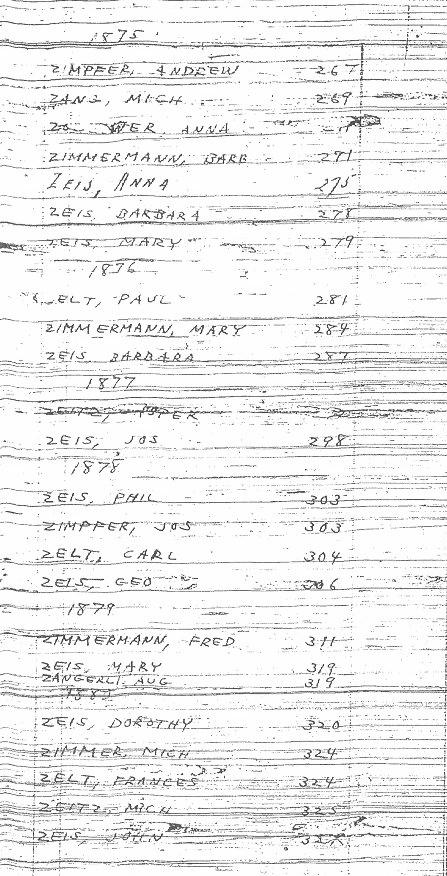 1875
ZIMPFER, ANDREW 267
ZANG, MICH 269
ANNA
ZIMMERMANN, BARB 271
ZEIS, ANNA 275
ZEIS, BARBARA 278
ZEIS, MARY 279
1876
ZELT, PAUL 281
ZIMMERMANN, MARY 284
ZEIS, BARBARA 287
1877
ZEITZ,
ZEIS, JOS 298
1878
ZEIS, PHIL 303
ZIMPFER, JOS 303
ZELT, CARL 304
ZEIS, GEO 306
1879
ZIMMERMANN, FRED 311
ZEIS, MARY 319
ZANGERLI, AUG 319
ZEIS, DOROTHY 320
ZIMMER, MICH 324
ZELT, FRANCES 324
ZEITZ, MICH 325
ZEIS, JOHN